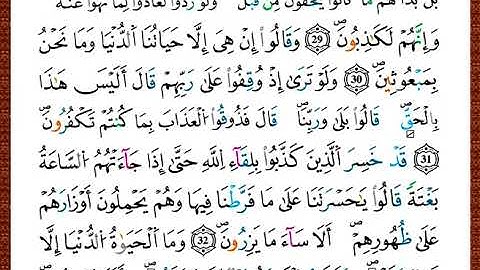 بَلْ بَدَا لَهُم مَّا كَانُوا۟ يُخْفُونَ مِن قَبْلُ ۖ وَلَوْ رُدُّوا۟ لَعَادُوا۟ لِمَا نُهُوا۟ عَنْهُ
وَإِنَّهُمْ لَكَٰذِبُونَ ۖ 29 وَقَالُوٓا۟ إِنْ هِىَ إِلَّا حَيَاتُنَا اَ۬لدُّنْيَا وَمَا نَحْنُ
بِمَبْعُوثِينَ ۖ 30 وَلَوْ تَرَىٰٓ إِذْ وُقِفُوا۟ عَلَىٰ رَبِّهِمْ قَالَ أَلَيْسَ هَٰذَا
بِالْحَقِّ ۖ قَالُوا۟ بَلَىٰ وَرَبِّنَا ۖ قَالَ فَذُوقُوا۟ اُ۬لْعَذَابَ بِمَا كُنتُمْ تَكْفُرُونَ ۖ
31 قَدْ خَسِرَ اَ۬لَّذِينَ كَذَّبُوا۟ بِلِقَآءِ اِ۬للَّهِ حَتَّىٰٓ إِذَا جَآءَتْهُمُ اُ۬لسَّاعَةُ
بَغْتَةً قَالُوا۟ يَٰحَسْرَتَنَا عَلَىٰ مَا فَرَّطْنَا فِيهَا وَهُمْ يَحْمِلُونَ أَوْزَارَهُمْ
عَلَىٰ ظُهُورِهِمْ ۖ أَلَا سَآءَ مَا يَزِرُونَ ۖ 32 وَمَا اَ۬لْحَيَوٰةُ اُ۬لدُّنْيَآ إِلَّا